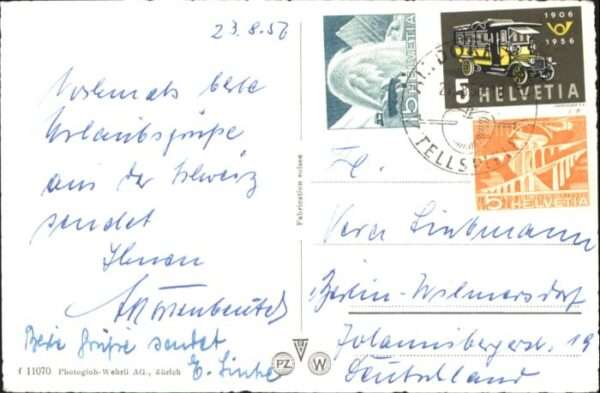 23.8.56
Nochmals beste
Urlaubsgrüße
aus der Schweiz
sendet
Ihnen
Beste Grüße sendet
E. Linke
f 11070 Photoglob-Wehrli AG., Zürich
Fabrication suisse
PZ W
15 HELVETIA
1906
1956
5 HELVETIA
TELLS
5 HELVETIA
Frl.
Vera Liebmann
Berlin-Wilmersdorf
Johannisbergerstr. 19
Deutschland